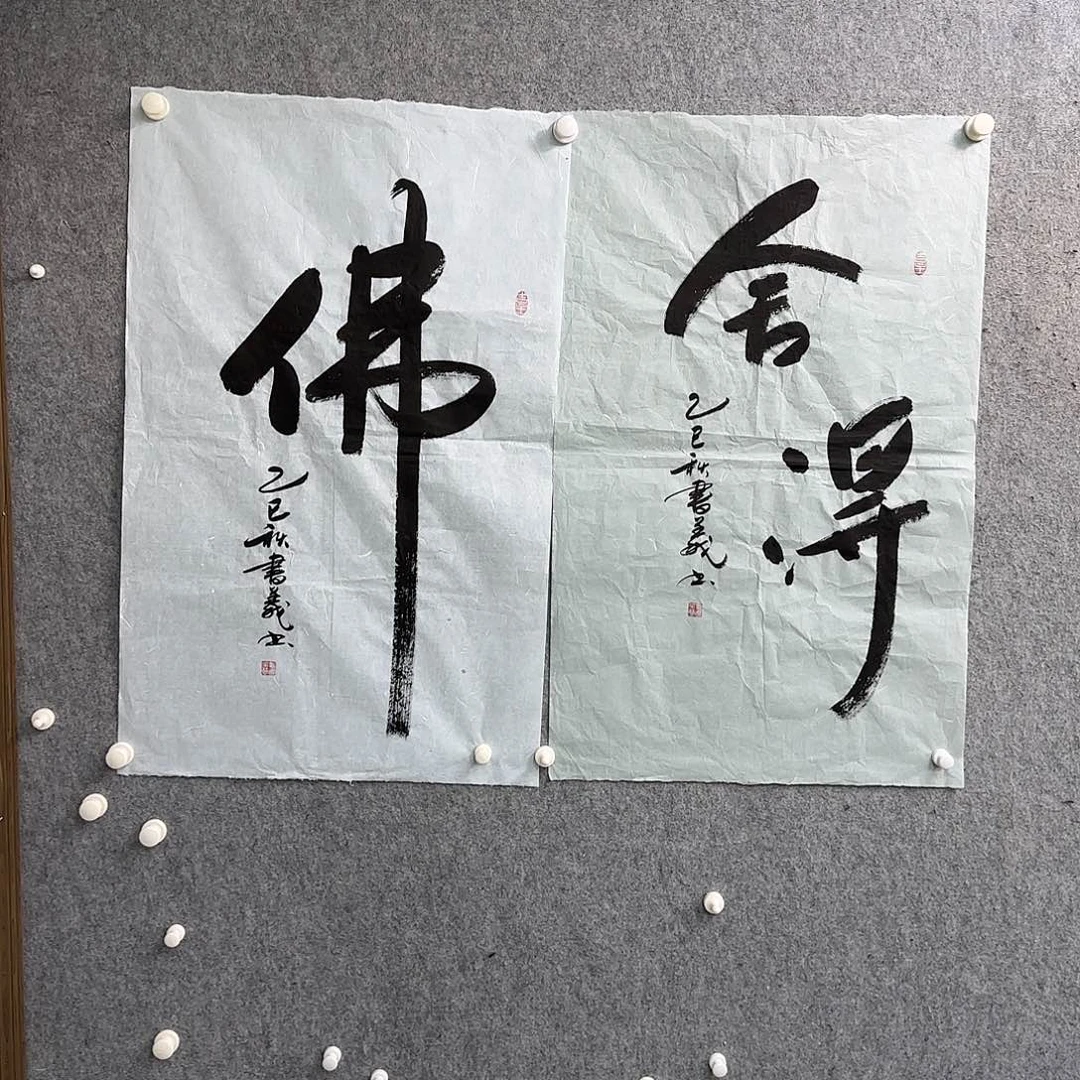 佛
乙巳秋書義书
舍得
乙巳秋書義书